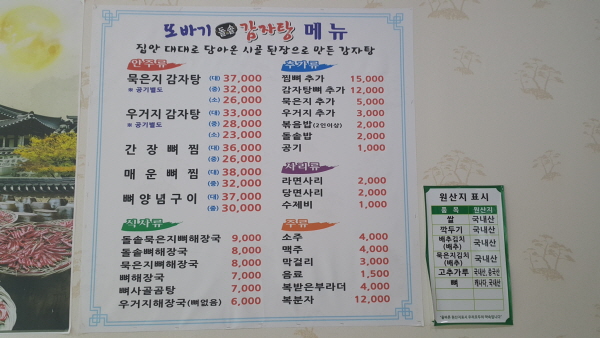 또바기 돌솥 감자탕 메뉴
집안 대대로 담아온 시골 된장으로 만든 감자탕
안주류
묵은지 감자탕 (대) 37,000
※ 공기별도 (중) 32,000
(소) 26,000
우거지 감자탕 (대) 33,000
※ 공기별도 (중) 28,000
(소) 23,000
간장뼈찜 (대) 36,000
(중) 26,000
매운뼈찜 (대) 38,000
(중) 32,000
뼈양념구이 (대) 37,000
(중) 30,000
식사류
돌솥묵은지뼈해장국 9,000
돌솥뼈해장국 8,000
묵은지뼈해장국 8,000
뼈해장국 7,000
뼈사골곰탕 7,000
우거지해장국(뼈없음) 6,000
추가류
찜뼈 추가 15,000
감자탕뼈 추가 12,000
묵은지 추가 5,000
우거지 추가 3,000
볶음밥(2인이상) 2,000
돌솥밥 2,000
공기 1,000
사리류
라면사리 2,000
당면사리 2,000
수제비 1,000
주류
소주 4,000
맥주 4,000
막걸리 3,000
음료 1,500
복받은부라더 4,000
복분자 12,000
원산지 표시
품목 원산지
쌀 국내산
깍두기 국내산
배추김치(배추) 국내산
묵은지김치(배추) 국내산
고추가루 국내산, 중국산
뼈 캐나다, 국내산